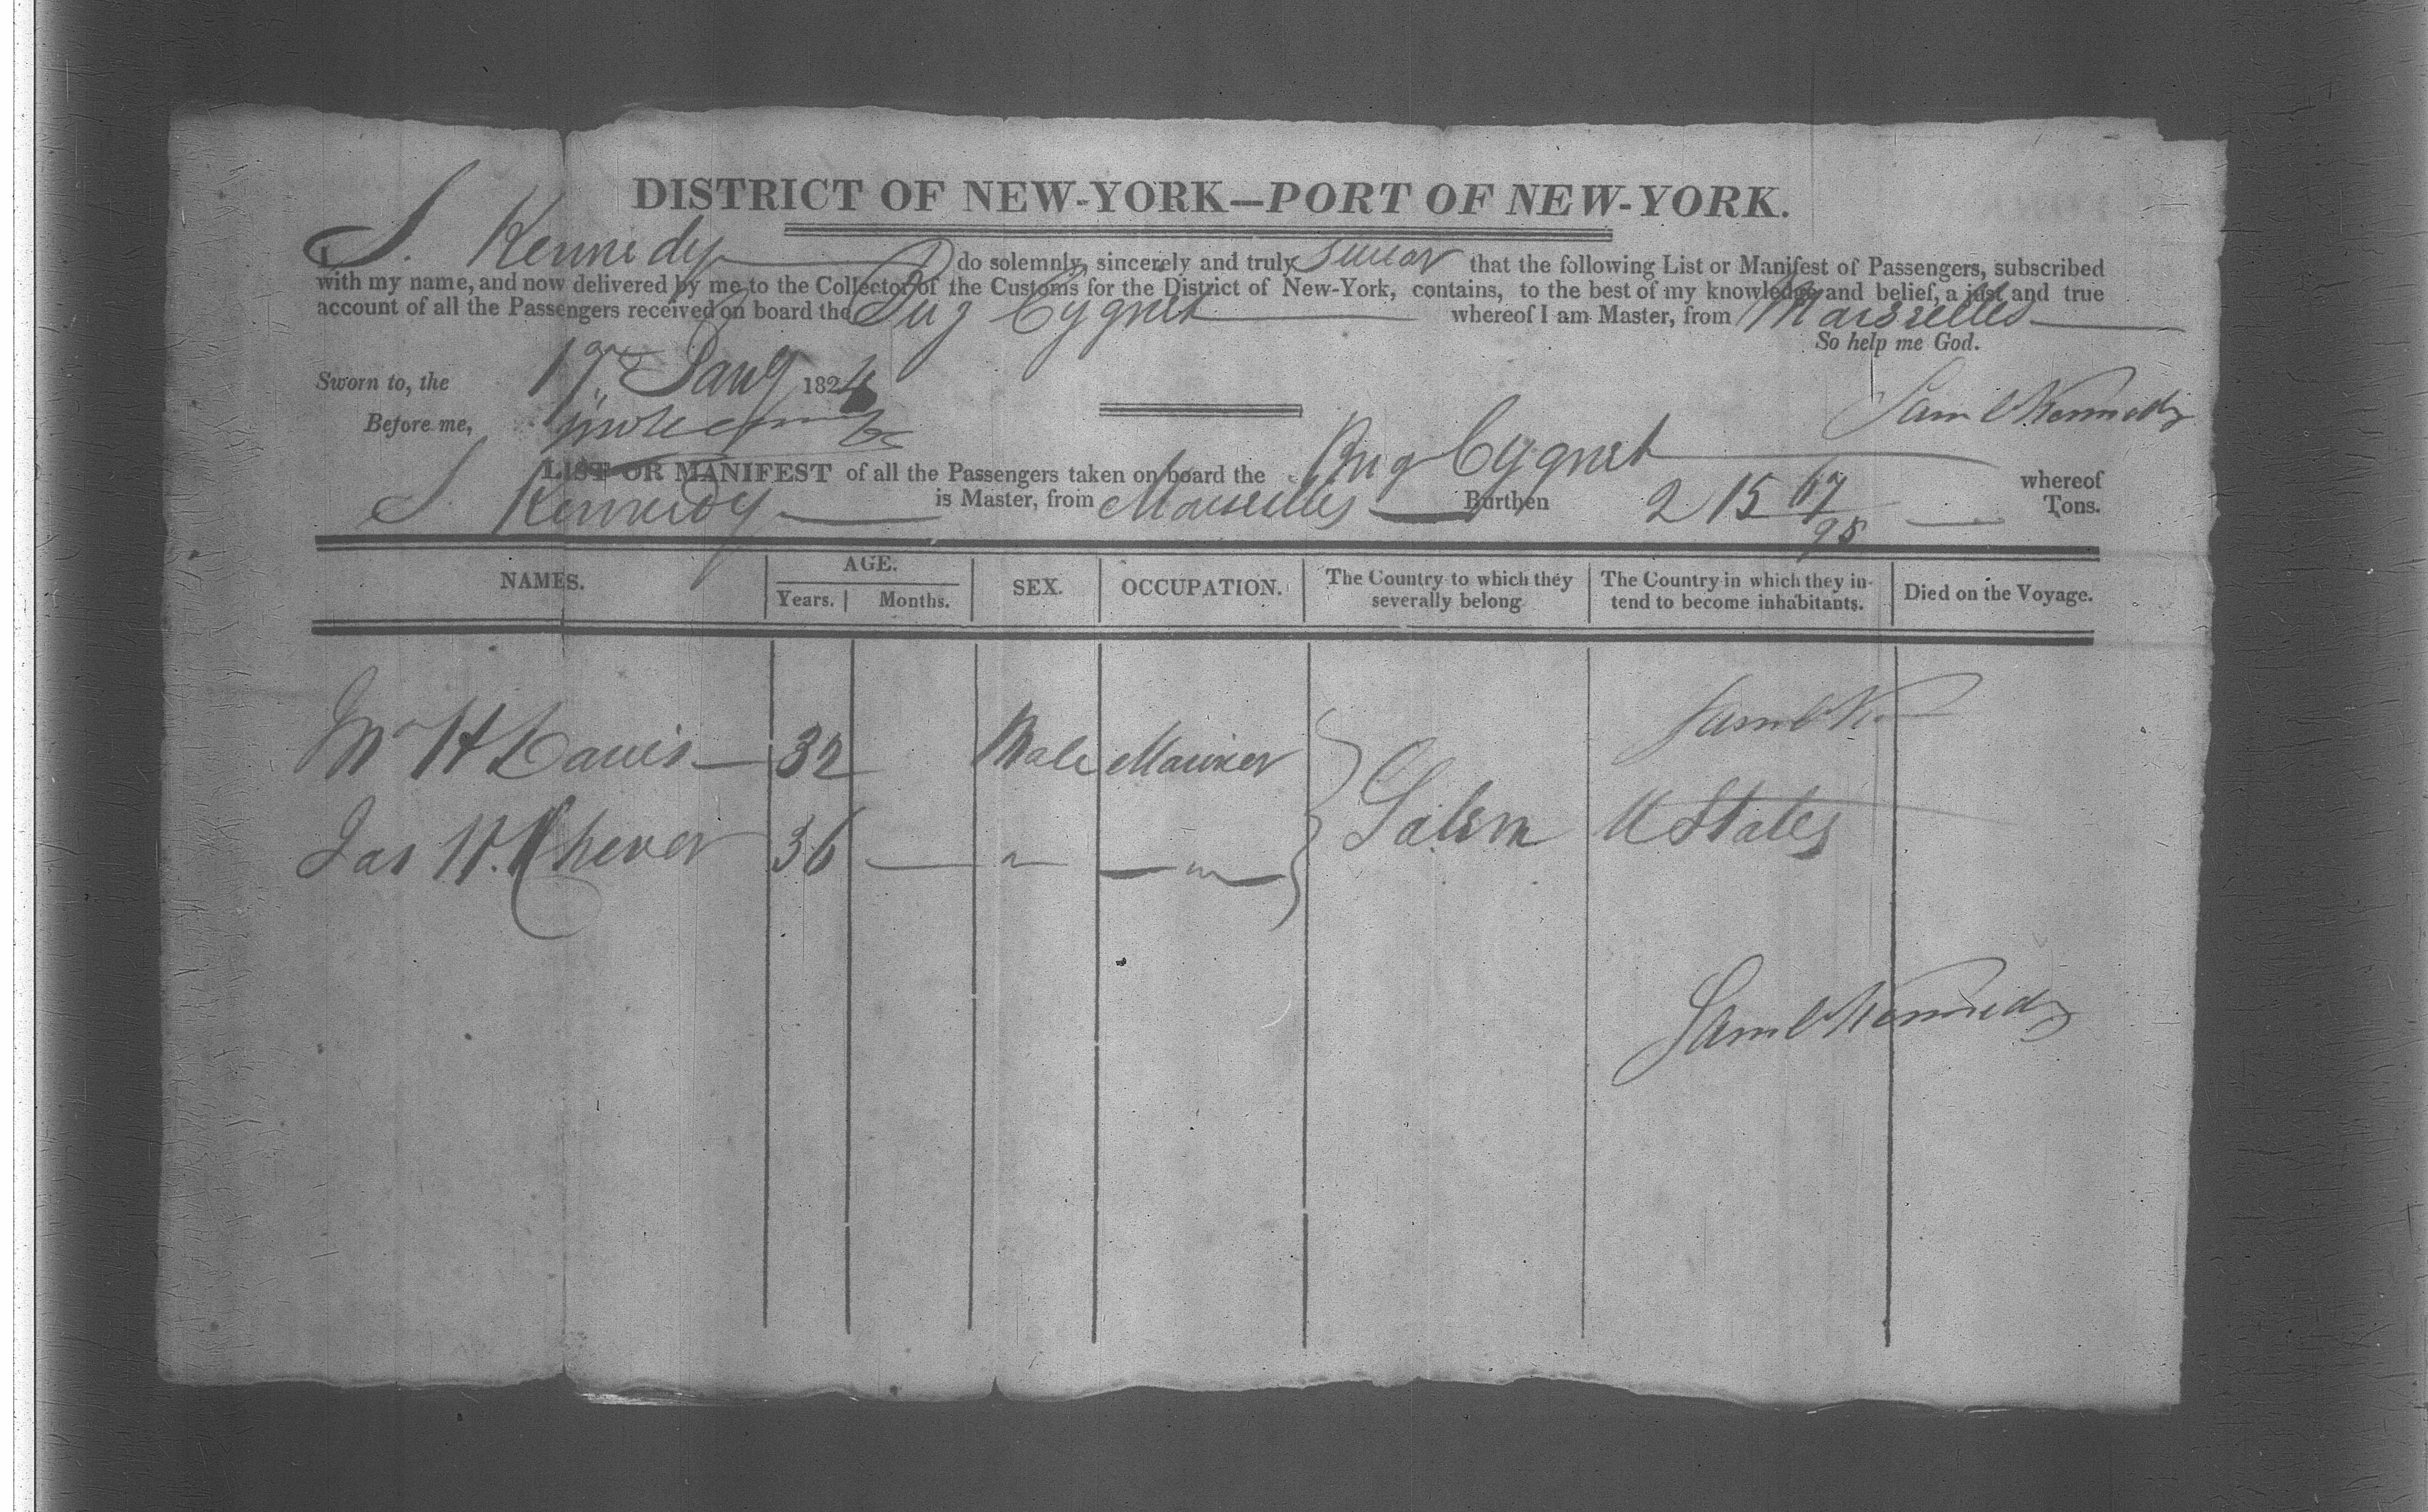 DISTRICT OF NEW-YORK—PORT OF NEW-YORK.
I, S. Kennedy do solemnly, sincerely and truly swear that the following List or Manifest of Passengers, subscribed
with my name, and now delivered by me to the Collector of the Customs for the District of New-York, contains, to the best of my knowledge and belief, a just and true
account of all the Passengers received on board the Brig Cygnet whereof I am Master, from Marseilles
So help me God.
Sworn to, the 17 Jany 1824
Saml Kennedy
Before me,
LIST OR MANIFEST of all the Passengers taken on board the Brig Cygnet whereof
S. Kennedy is Master, from Marseilles Burthen 215 67/95 Tons.
NAMES. AGE. SEX. OCCUPATION. The Country to which they severally belong The Country in which they intend to become inhabitants. Died on the Voyage.
Years. Months.
Saml K
Mr H Davis 32 Male Mariner
Salem U States
Jas W. Chever 36 " "
Saml Kennedy